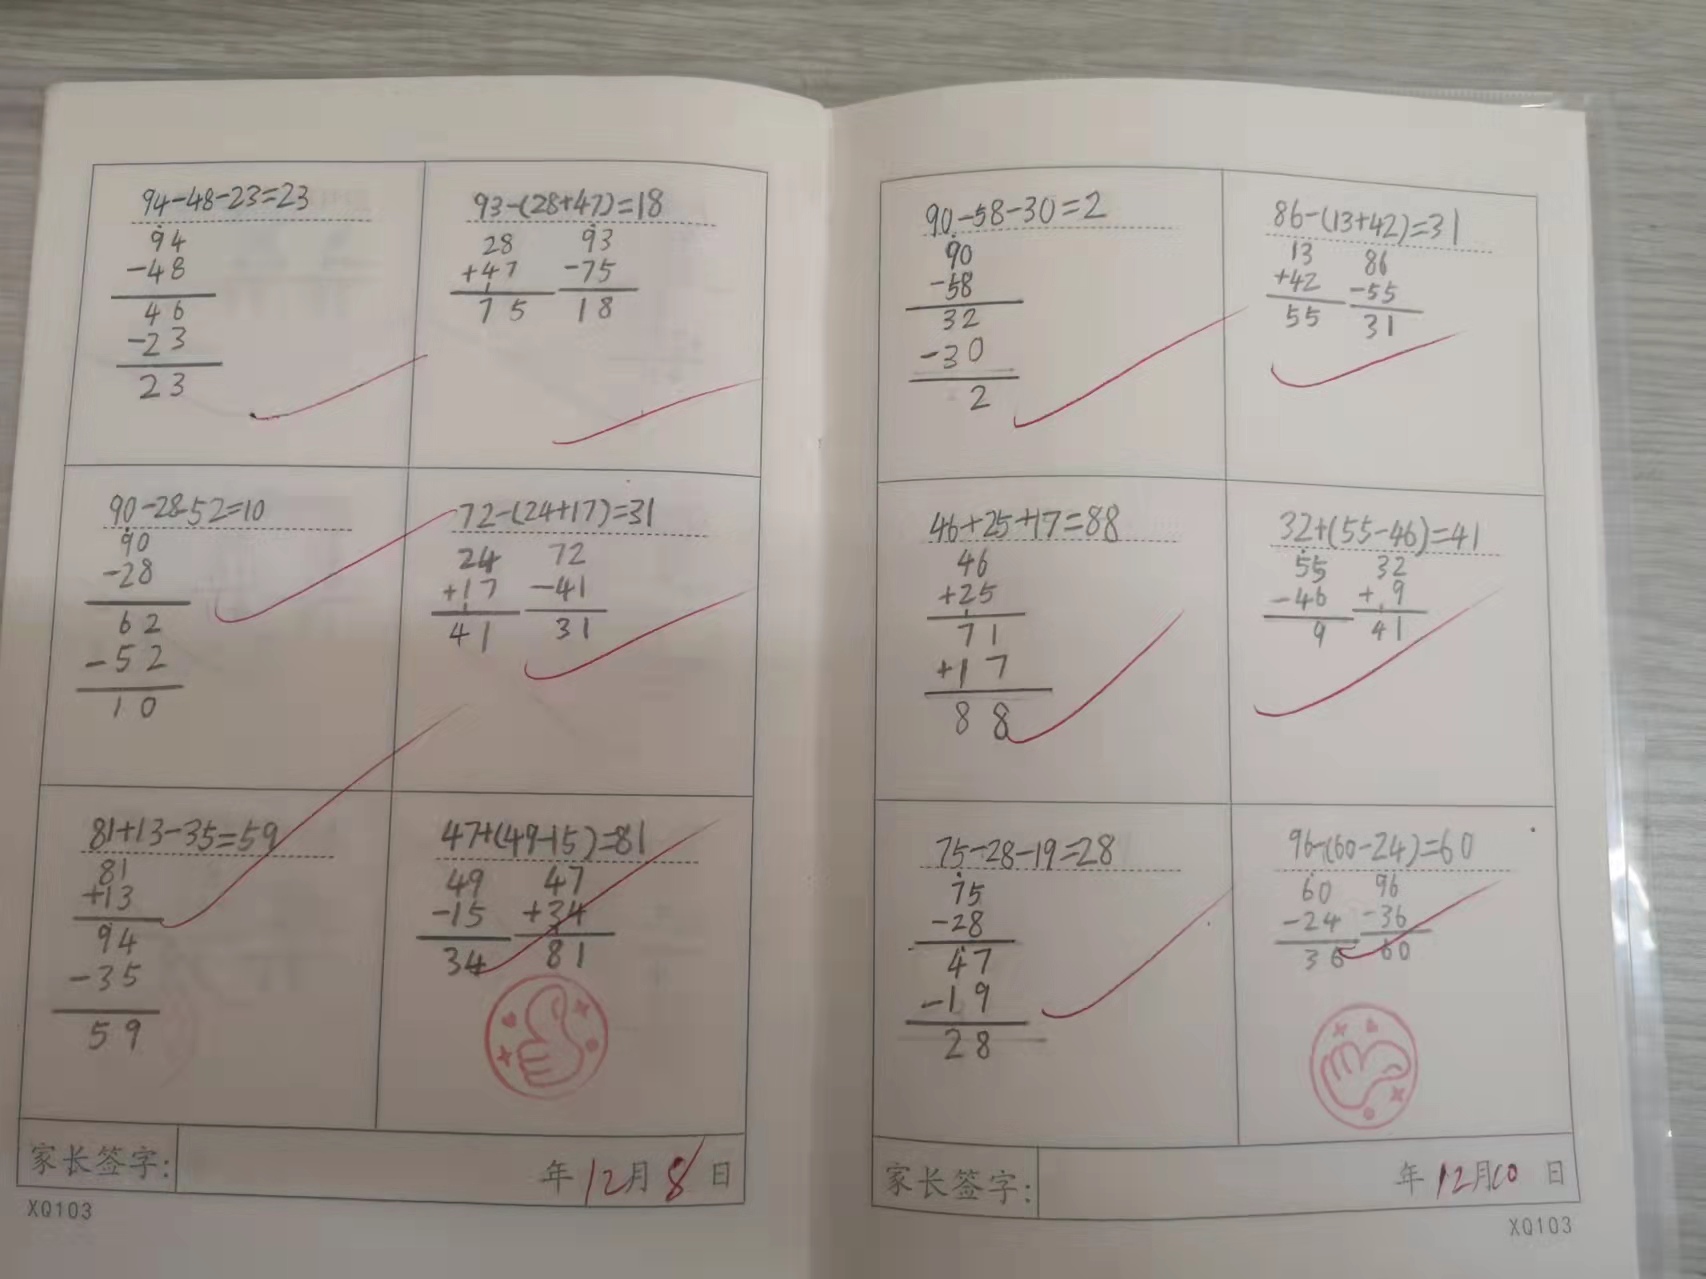 94-48-23=23
94
-48
46
-23
23
93-(28+47)=18
28 93
+47 -75
75 18
90-28-52=10
90
-28
62
-52
10
72-(24+17)=31
24 72
+17 -41
41 31
81+13-35=59
81
+13
94
-35
59
47+(49-15)=81
49 47
-15 +34
34 81
家长签字: 年12月8日
XQ103
90-58-30=2
90
-58
32
-30
2
86-(13+42)=31
13 86
+42 -55
55 31
46+25+17=88
46
+25
71
+17
88
32+(55-46)=41
55 32
-46 +9
9 41
75-28-19=28
75
-28
47
-19
28
96-(60-24)=60
60 96
-24 -36
36 60
家长签字: 年12月10日
XQ103